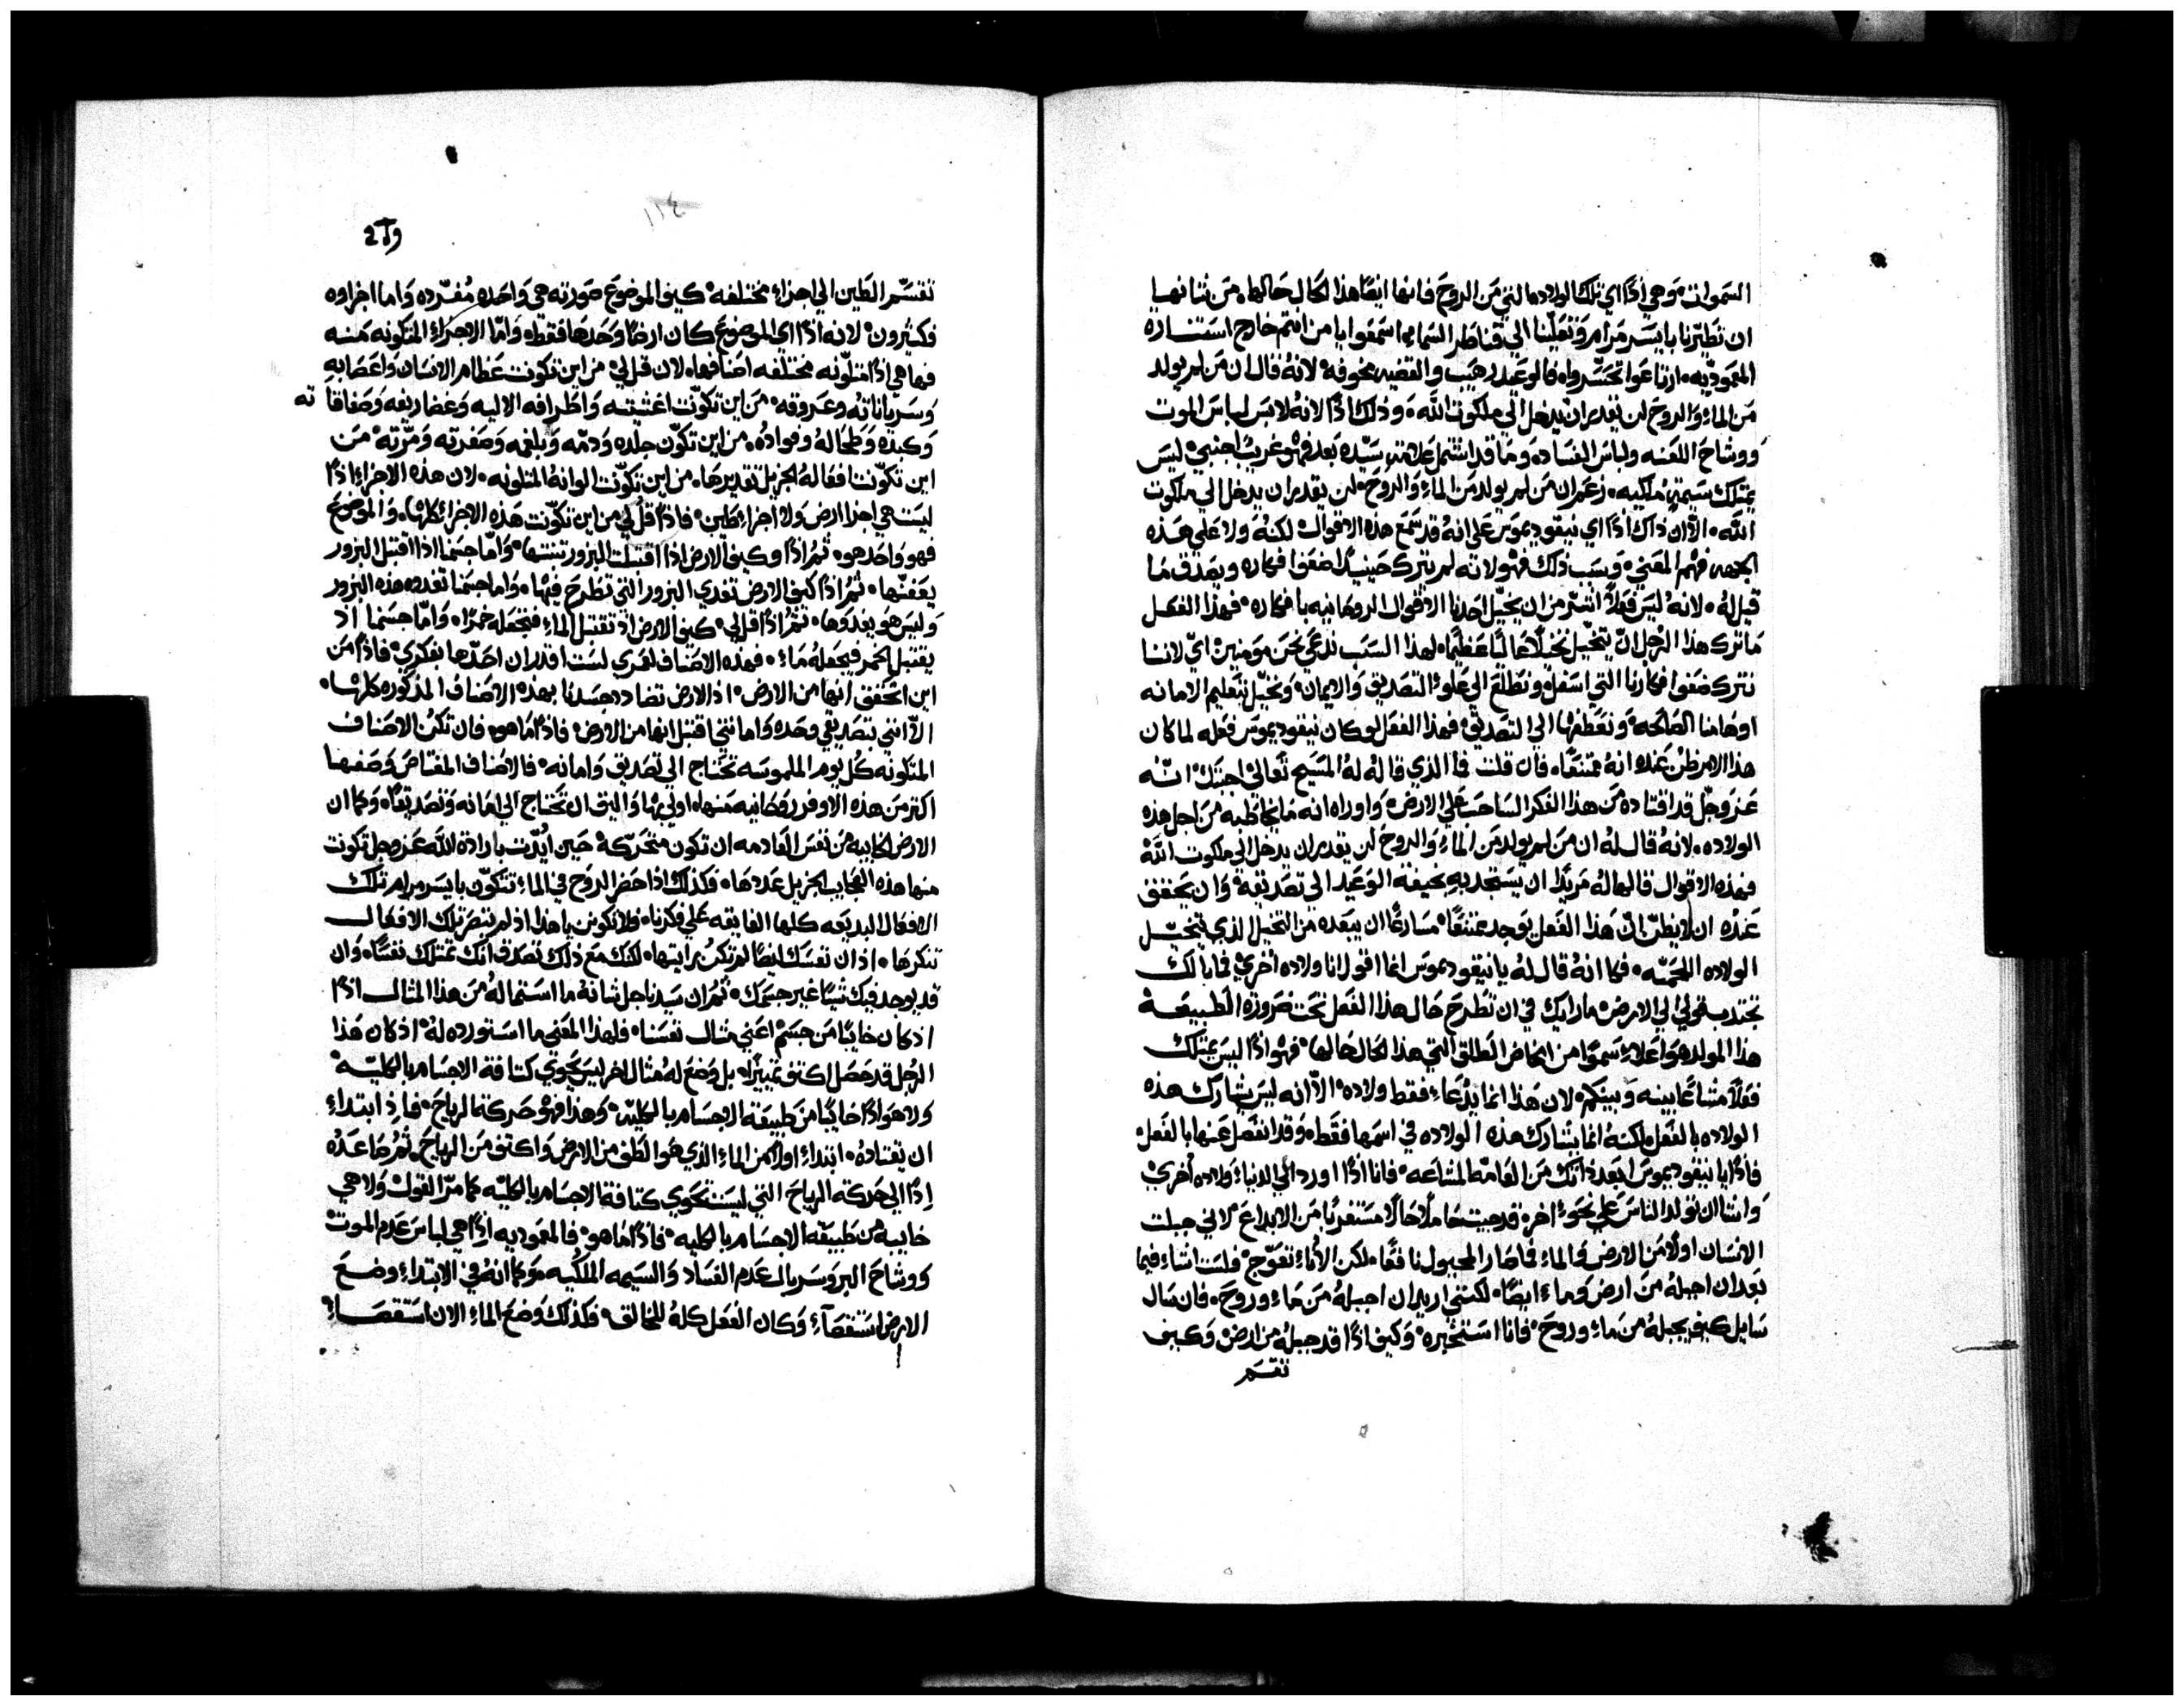 السموات وهي اذًا اي تلك الولاده التي من الروح فانها ايضًا هذا الحال حالها من شانها
ان تطيرنا بايسر مرام وتعلينا الي قناطر السما اسمعوا يا من انتم خارج استناره
المعموديه ارتاعوا تحسروا فالوعيد رهيب والقضيه مخوفه لانه قال ان من لم يولد
من الماء والروح لن يقدر ان يدخل الي ملكوت الله وذلك اذًا لانه لابس لباس الموت
ووشاح اللعنه ولباس الفساد وما قد اشتمل علامته سيده بعد فهو غريب اجنبي ليس
يمتلك سيمةً ملكيه زعم ان من لم يولد من الماء والروح لن يقدر ان يدخل الي ملكوت
الله الا ان ذاك اذًا اي نيقوديموس علي انه قد سمع هذه الاقوال لكنه ولا علي هذه
الجهه فهم المعني وسبب ذلك فهو لانه لم يترك حينيذ ضعف افكاره ويصدق ما
قيل له لانه ليس فعلًا اشر من ان يخيل احدنا الاقوال الروحانيه بافكاره فهذا الفعل
ما ترك هذا الرجل ان يتخيل تخيلًا عاليًا عظيمًا لهذا السبب ندعي نحن مومنين اي لاننا
نترك ضعف افكارنا التي اسفل ونطلع الي علو التصديق والايمان ونخيل بتعليم الامانه
اوهامنا الصالحه ونعطفها الي التصديق فهذا الفعل لو كان نيقوديموس فعله لما كان
هذا الامر ظن عنده انه ممتنعًا فان قلت فما الذي قاله له المسيح تعالي اجبتك انه
عز وجل قد اقتاده من هذا الفكر الساحب علي الارض واوراه انه ما يخاطبه من اجل هذه
الولاده لانه قال له ان من لم يولد من الماء والروح لن يقدر ان يدخل الي ملكوت الله
فهذه الاقوال قالها له مريدًا ان يستجد به بخيفة الوعيد الي تصديقه وان يحقق
عنده ان لا يظن ان هذا الفعل يوجد ممتنعًا مسارعًا ان يبعده من التخيل الذي يتخيل
الولاده اللحميه فكما انه قال له يا نيقوديموس انما اقول انا ولاده اخري فما بالك
تجتذب قولي الي الارض ما رايك في ان تطرح حال هذا الفعل تحت ضرورة الطبيعه
هذا المولد هو اعلا سموًا من المخاض الطلق التي هذا الحال حالها فهو اذًا ليس يمتلك
فعلًا مشاعًا بينه وبينكم لان هذا انما يدعاء فقط ولاده الا انه ليس يشارك هذه
الولاده بالفعل لكنه انما يشارك هذه الولاده في اسمها فقط وقد انفصل عنها بالفعل
فاذًا يا نيقوديموس ابعد ذاتك من العامه المشاعه فانا اذًا اورد الي الدنيا ولاده اخري
وانشاا ان تولد الناس علي نحو اخر قد جيت حاملًا حالًا مستغربًا من الابداع لاني جبلت
الانسان اولًا من الارض والماء فما صار المجبول نافعًا لكن الاناء تعوج فلست اشاء فيما
بعد ان اجبله من ارض وماء ايضًا لكنني اريد ان اجبله من ماء وروح فان سال
سايل كيف يجبله من ماء وروح فانا استخبره وكيف اذًا قد جبله من ارض وكيف
تقسم
١١٤
تقسم الطين الي اجزاء مختلفه كيف الموضوع صورته هي واحده مفرده واما اجزاوه
فكثيرون لانه اذًا اي الموضوع كان ارضًا وحدها فقط واما الاجزاء المتكونه منه
فها هي اذًا متلونه مختلفه اصنافها لان قل لي من اين تكونت عظام الانسان واعصابه
وسرياناته وعروقه من اين تكونت اغشيته واطرافه الاليه وغضاريفه وصفاقاته
وكبده وطحاله وفواده من اين تكون جلده ودمه وبلغمه وصفرته ومرته من
اين تكونت افعاله الجزيل تقديرها من اين تكونت الوانه المتلونه لان هذه الاجزاء اذًا
ليست هي اجزا ارض ولا اجزاء طين فاذًا قل لي من اين تكونت هذه الاجزاء كلها والموضوع
فهو واحد هو ثم اذًا وكيف الارض اذا اقتبلت البزور تنبتها واما جسمنا اذا اقتبل البزور
يعفنها ثم اذًا كيف الارض تغدي البزور التي تطرح فيها واما جسمنا تغدوه هذه البزور
وليس هو يغدوها ثم اذًا قل لي كيف الارض اذ تقتبل الماء فتجعله خمرًا واما جسمنا اذ
يقتبل الخمر فيجعله ماء فهذه الاصناف لعمري لست اقدر ان احدها بفكري فاذًا من
اين اتحقق انها من الارض اذ الارض تضادد جسدنا بهذه الاصناف المذكوره كلها
الا انني بتصديقي وحده وامانتي اقتبل انها من الارض فاذًا ما هو فان تكن الاصناف
المتكونه كل يوم الملموسه تحتاج الي تصديق وامانه فالاصناف المعتاص وصفها
اكثر من هذه الاوفر روحانيه منها اولي بها واليق ان تحتاج الي امانه وتصديقًا وكما ان
الارض الخاييبه من نفس العادمه ان تكون متحركة حين ايدت بارادة الله عز وجل تكونت
منها هذه العجايب الجزيل عددها فكذلك اذا حضر الروح في الماء تتكون بايسر مرام تلك
الافعال البديعه كلها الفايقه علي فكرنا فلا تكونن يا هذا اذ لم تبصر تلك الافعال
تنكرها اذ ان نفسك ايضًا لم تكن رايتها لكنك مع ذلك تصدق انك تمتلك نفسًا وان
قد يوجد فيك شيًا غير جسمك ثم ان سيدنا جل شانه ما استماله من هذا المثال اذًا
اذ كان خايبًا من جسم اعني مثال نفسنا فلهذا المعني ما استورده له اذ كان هذا
الرجل قد حصل اكثف تمييزًا بل وضع له مثال اخر ليس يحوي كثافة الاجسام بالكليه
ولا هو اذًا خايبًا من طبيعة الاجسام بالكليه وهذا فهو حركة الرياح فاذ ابتداء
ان يقتاده ابتداء اولًا من الماء الذي هو الطف من الارض واكثف من الرياح ثم صاعده
اذًا الي حركة الرياح التي ليست تحوي كثافة الاجسام بالكليه كما مر القول ولا هي
خايبة من طبيعة الاجسام بالكليه فاذًا ما هو فالمعموديه اذًا هي لباس عدم الموت
ووشاح البر وسربال عدم الفساد والسيمه الملكيه وكما انه في الابتداء وضع
الارض استقصاء وكان الفعل كله للخالق فكذلك وضع الماء الان استقصاء